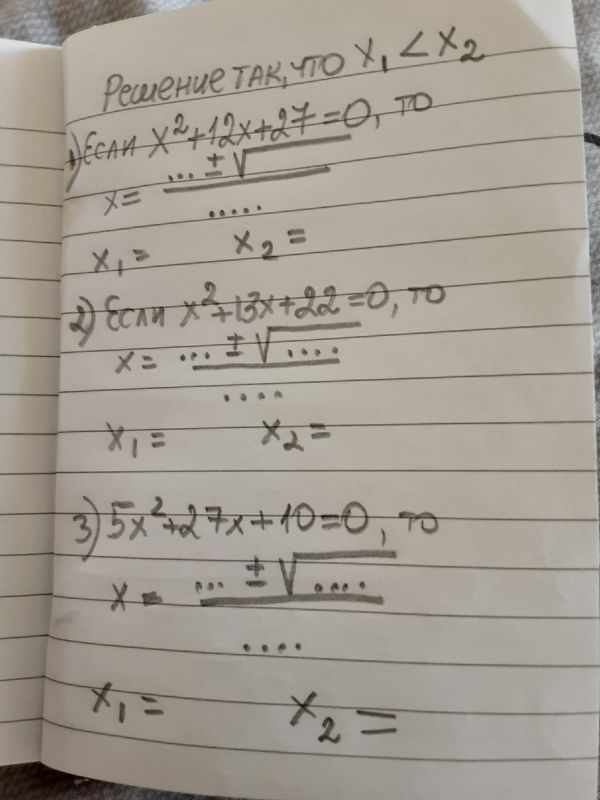 Решение так, что x₁ < x₂
1) Если x²+12x+27=0, то
... ±√
x= .....
x₁= x₂=
2) Если x²+13x+22=0, то
x= ... ±√....
....
x₁= x₂=
3) 5x²+27x+10=0, то
x= ... ±√....
....
x₁= x₂=